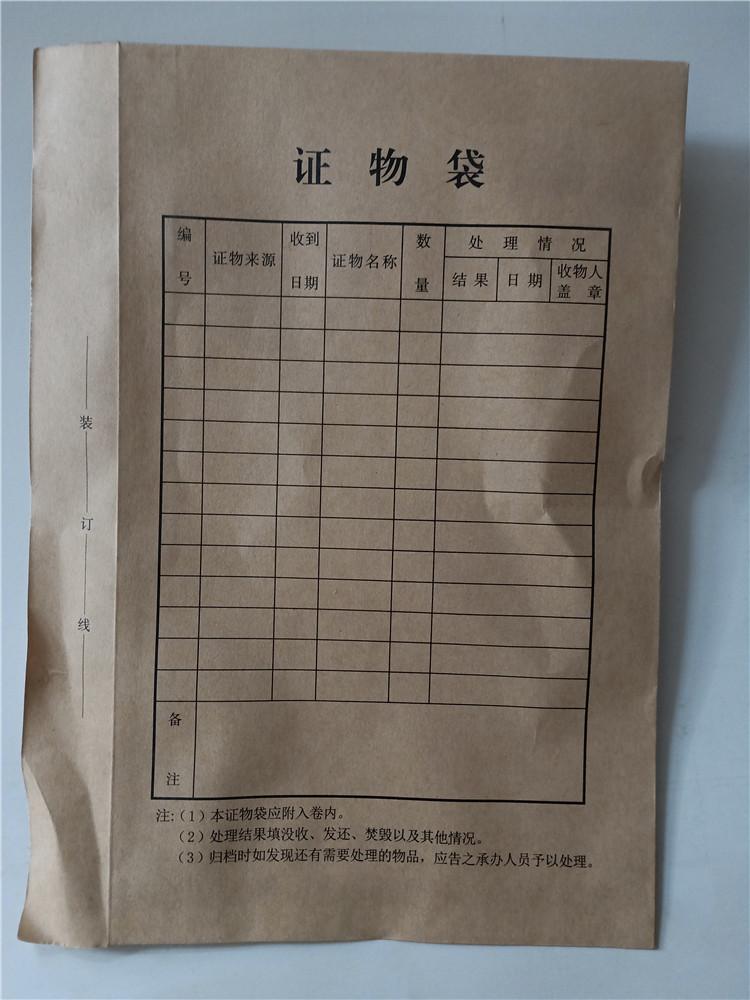 证物袋
编号
证物来源
收到日期
证物名称
数量
处理情况
结果
日期
收物人盖章
备注
装订线
注:(1)本证物袋应附入卷内。
(2)处理结果填没收、发还、焚毁以及其他情况。
(3)归档时如发现还有需要处理的物品，应告之承办人员予以处理。